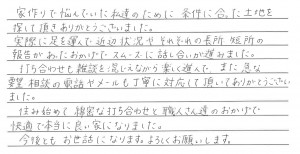 家作りで悩んでいた私達のために条件に合った土地を
探して頂きありがとうございました。
実際に足を運んで近辺状況やそれぞれの長所・短所の
報告があったおかげで、スムーズに話し合いが進みました。
打ち合わせも雑談を混じえながら楽しく進んで、また急な
要望・相談の電話やメールも丁寧に対応して頂いてありがとうござい
ました。
住み始めて、綿密な打ち合わせと職人さん達のおかげで
快適で本当に良い家になりました。
今後ともお世話になります。よろしくお願いします。